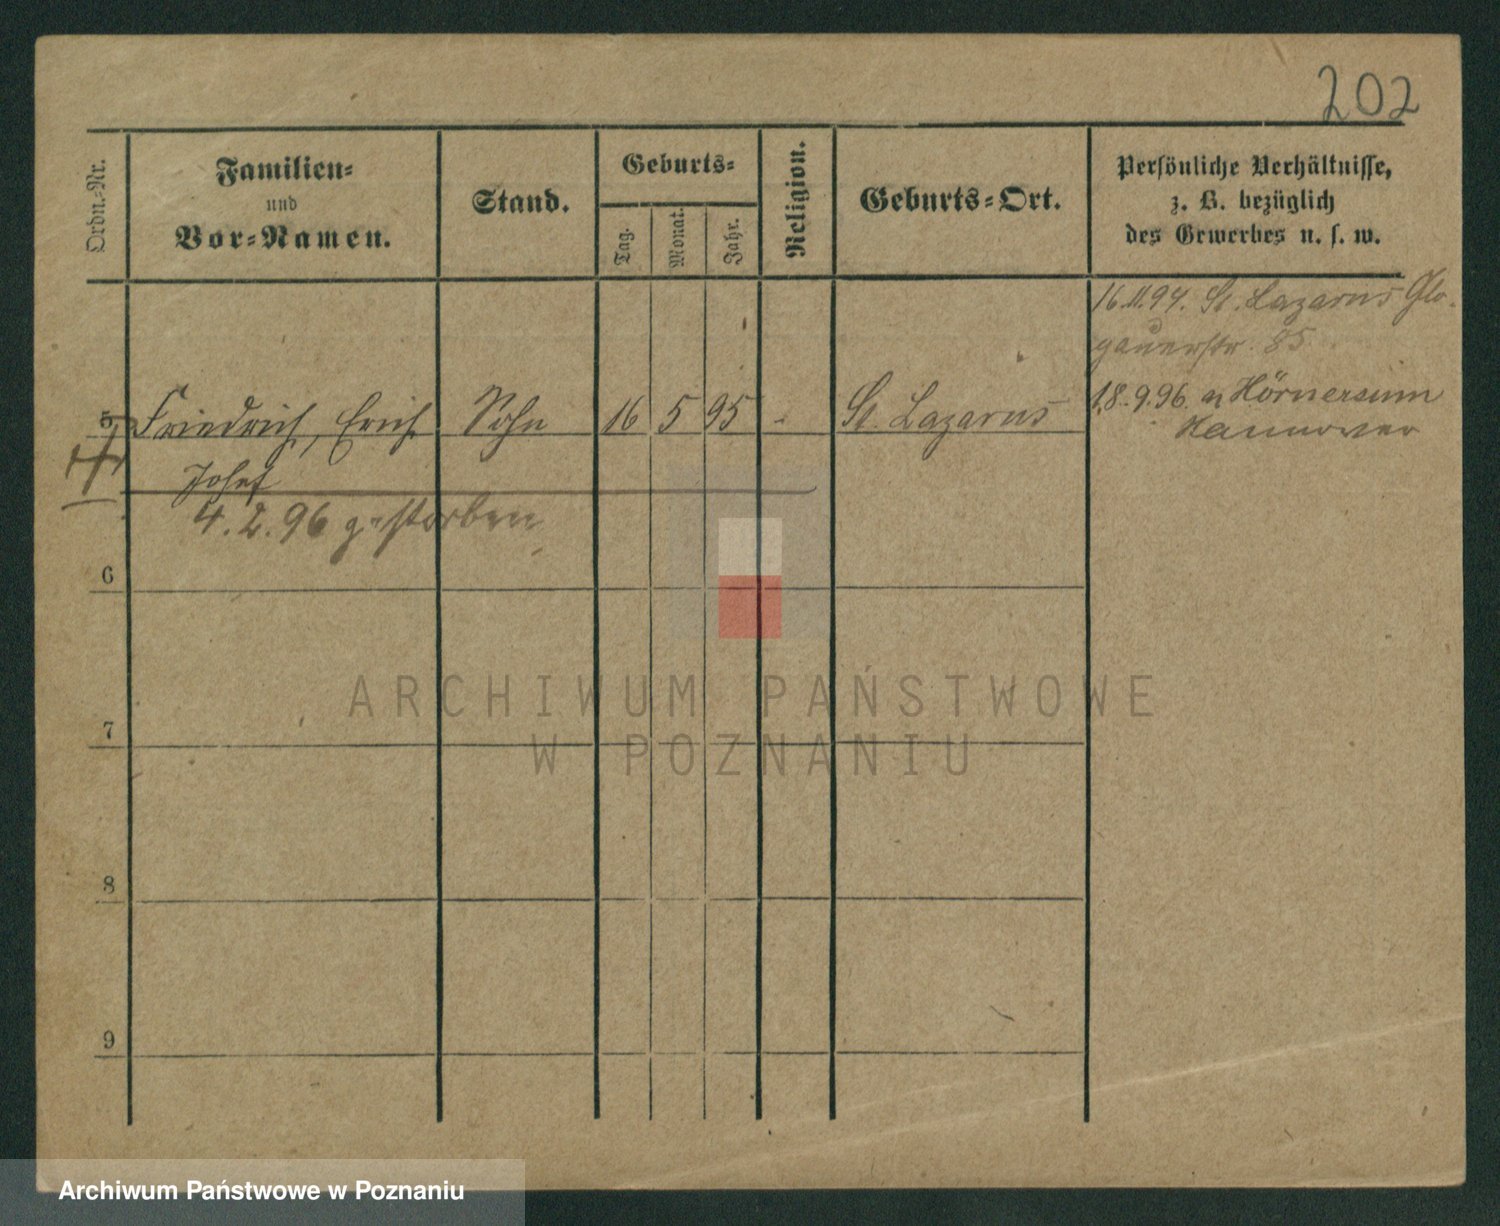 202
Ordn.-Nr.
Familien-
und
Vor-Namen.
Stand.
Geburts-
Tag.
Monat.
Jahr.
Religion.
Geburts-Ort.
Persönliche Verhältnisse,
z. B. bezüglich
des Gewerbes u. s. w.
16.11.94. St. Lazarus Glo-
gauerstr. 85
5 Friedrich, Erich Sohn 16 5 95 - St. Lazarus
Josef
18.9.96. n Hörnersum
Hannover
4.2.96 gestorben
6
7
8
9
ARCHIWUM PAŃSTWOWE
W POZNANIU
Archiwum Państwowe w Poznaniu